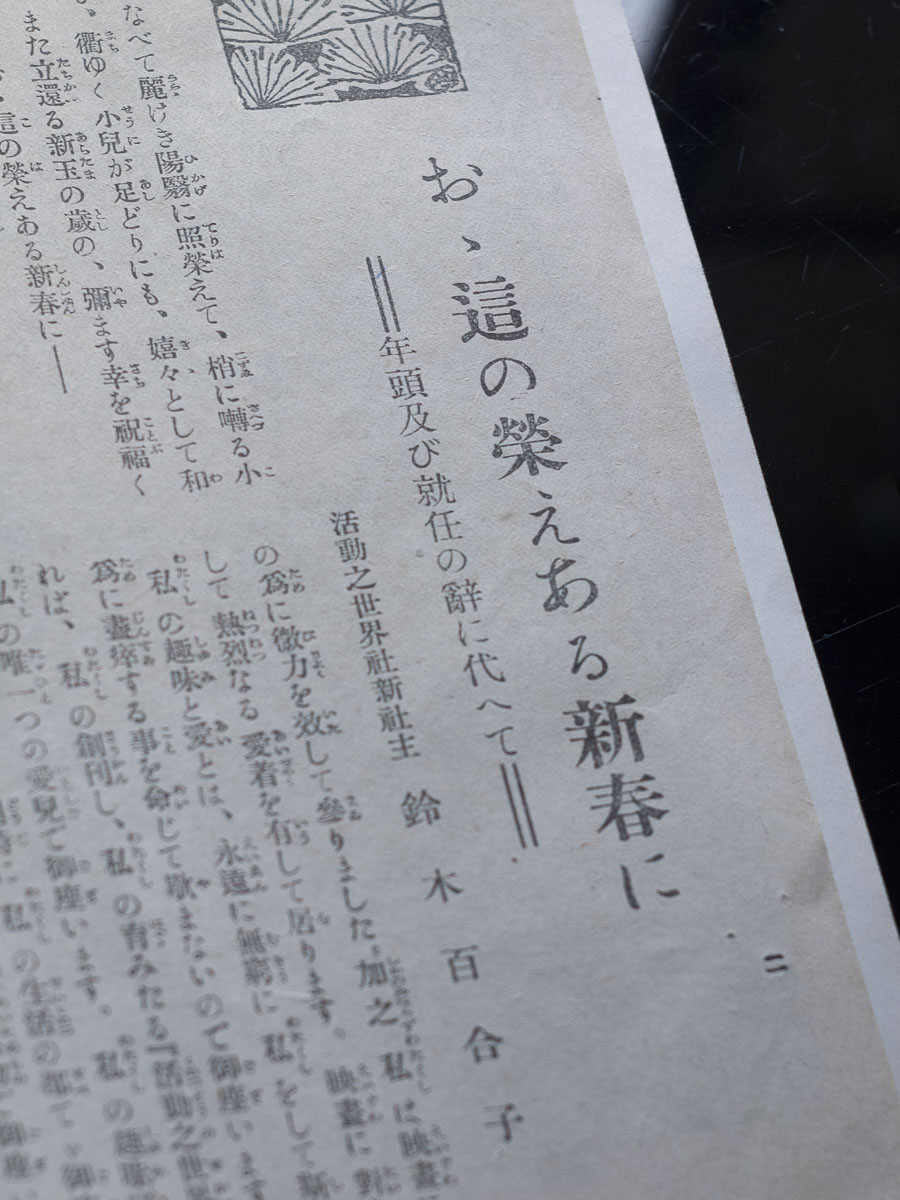 二
おゝ這の榮えある新春に
══年頭及び就任の辭に代へて══
活動之世界社新社主 鈴木百合子
なべて麗けき陽翳に照榮えて、梢に囀る小
衢ゆく小兒が足どりにも、嬉々として和
また立還る新玉の歳の、彌ます幸を祝福く
這の榮えある新春に――
の爲に微力を效して參りました。加之私に映畫
して熱烈なる愛着を有して居ります。映畫に對
私の趣味と愛とは、永遠に無窮に私をして斯
爲に盡瘁する事を命じて歇まないので御座います
れば、私の創刊し、私の育みたる『活動之世
私の唯一つの愛兒で御座います。私の趣味
時に私の生活の都て